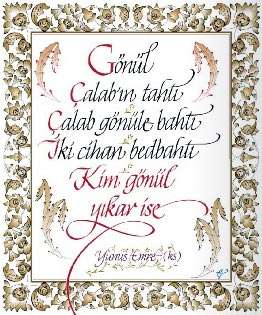 Gönül
Çalab'ın tahtı
Çalab gönüle bahtı
İki cihan bedbahtı
Kim gönül
yıkar ise
Yunus Emre (ks)